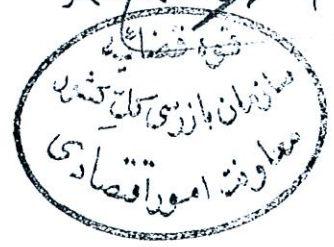 قوه قضائیه
سازمان بازرسی کل کشور
معاونت امور اقتصادی